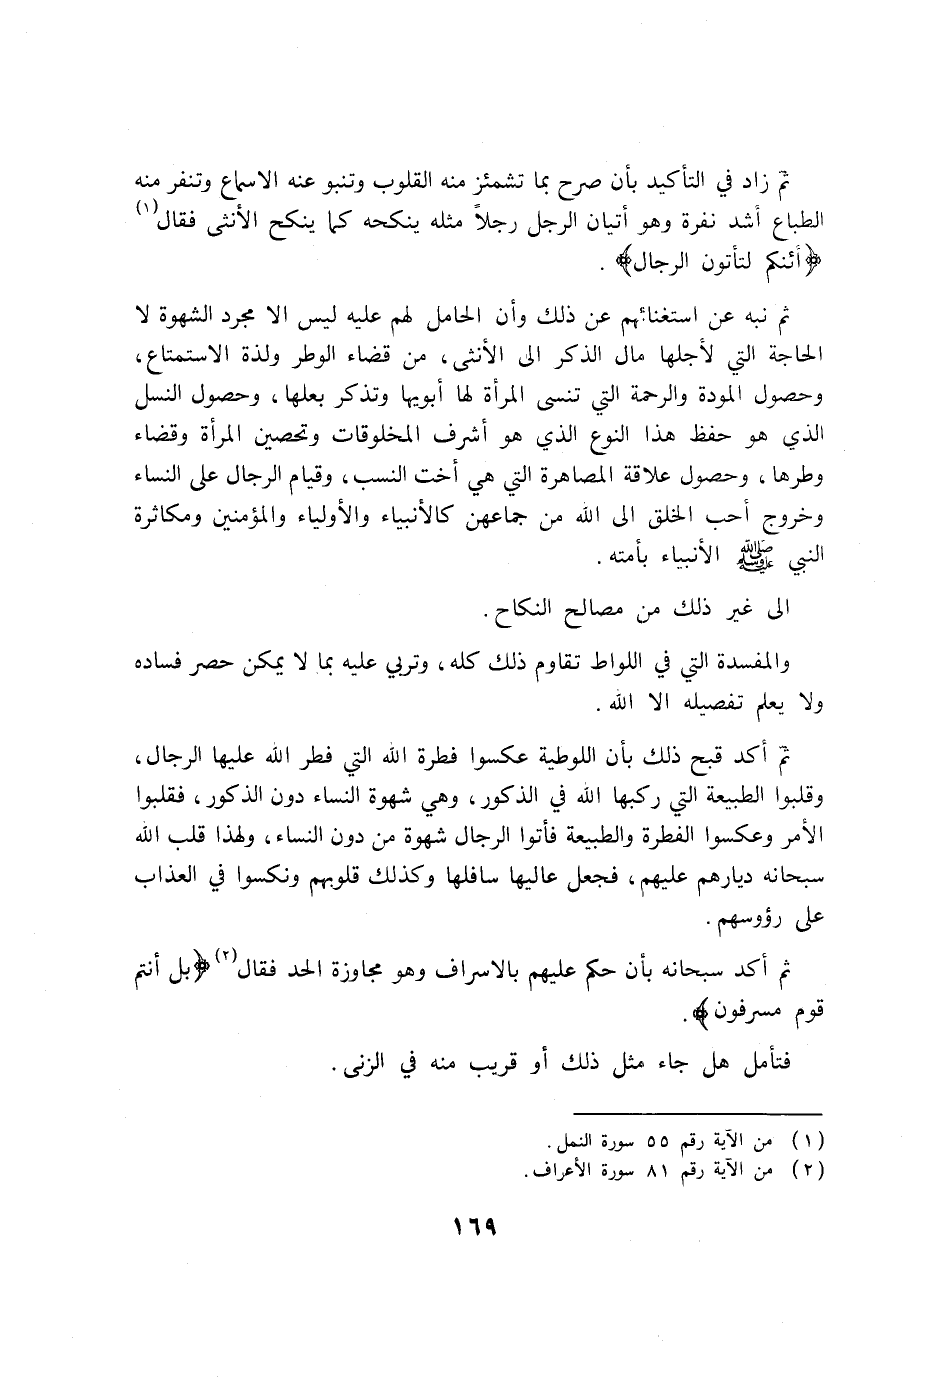 ثم زاد في التأكيد بأن صرح بما تشمئز منه القلوب وتنبو عنه الاسماع وتنفر منه
الطباع أشد نفرة وهو أتيان الرجل رجلاً مثله ينكحه كما ينكح الأنثى فقال(١)
﴿أئنكم لتأتون الرجال﴾ .
ثم نبه عن استغنائهم عن ذلك وأن الحامل لهم عليه ليس الا مجرد الشهوة لا
الحاجة التي لأجلها مال الذكر الى الأنثى، من قضاء الوطر ولذة الاستمتاع،
وحصول المودة والرحمة التي تنسى المرأة لها أبويها وتذكر بعلها، وحصول النسل
الذي هو حفظ هذا النوع الذي هو أشرف المخلوقات وتحصين المرأة وقضاء
وطرها، وحصول علاقة المصاهرة التي هي أخت النسب، وقيام الرجال على النساء
وخروج أحب الخلق الى الله من جماعهن كالأنبياء والأولياء والمؤمنين ومكاثرة
النبي ﷺ الأنبياء بأمته .
الى غير ذلك من مصالح النكاح .
والمفسدة التي في اللواط تقاوم ذلك كله، وتربي عليه بما لا يمكن حصر فساده
ولا يعلم تفصيله الا الله .
ثم أكد قبح ذلك بأن اللوطية عكسوا فطرة الله التي فطر الله عليها الرجال،
وقلبوا الطبيعة التي ركبها الله في الذكور، وهي شهوة النساء دون الذكور، فقلبوا
الأمر وعكسوا الفطرة والطبيعة فأتوا الرجال شهوة من دون النساء، ولهذا قلب الله
سبحانه ديارهم عليهم، فجعل عاليها سافلها وكذلك قلوبهم ونكسوا في العذاب
على رؤوسهم .
ثم أكد سبحانه بأن حكم عليهم بالاسراف وهو مجاوزة الحد فقال(٢) ﴿بل أنتم
قوم مسرفون﴾ .
فتأمل هل جاء مثل ذلك أو قريب منه في الزنى .
(١) من الآية رقم ٥٥ سورة النمل .
(٢) من الآية رقم ٨١ سورة الأعراف .
١٦٩